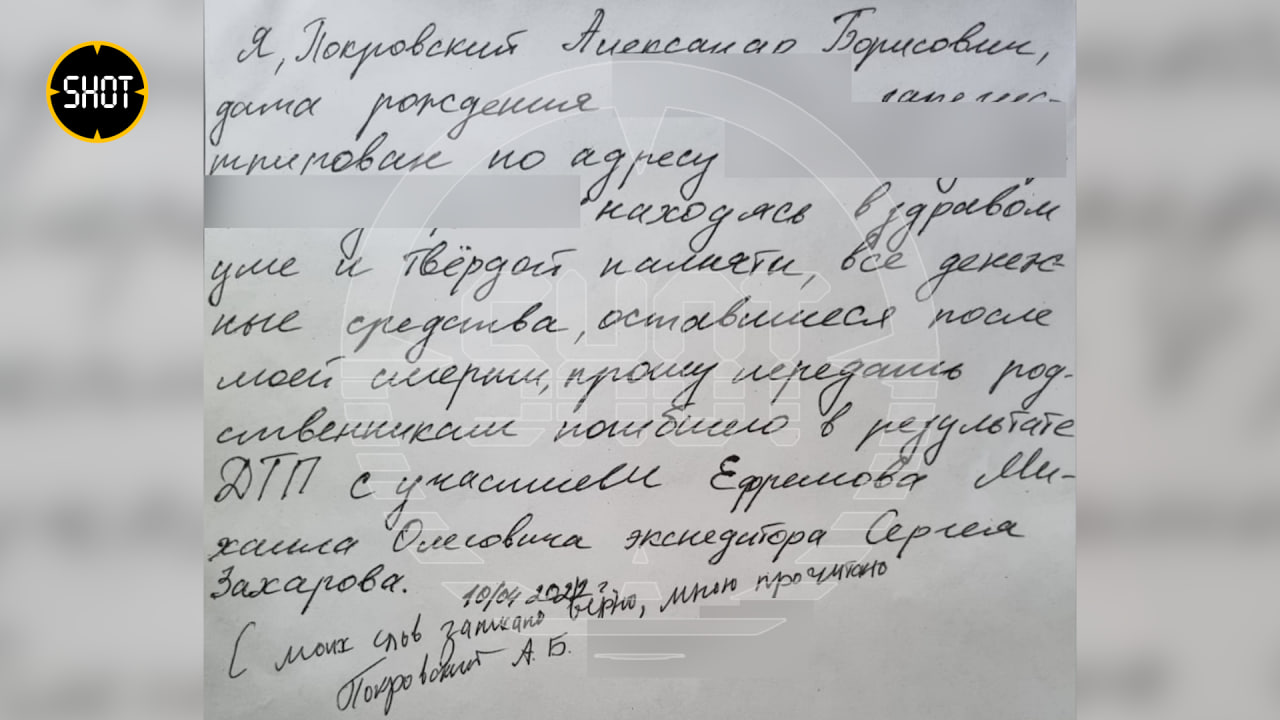 SHOT
Я, Покровский Александр Борисович,
дата рождения
зарегис-
трирован по адресу
находясь в здравом
уме и твёрдой памяти, все денеж-
ные средства, оставшиеся после
моей смерти, прошу передать род-
ственникам погибшего в результате
ДТП с участием Ефремова Ми-
хаила Олеговича экспедитора Сергея
Захарова.
10/04 2022 г.
С моих слов записано верно, мною прочитано
Покровский А. Б.